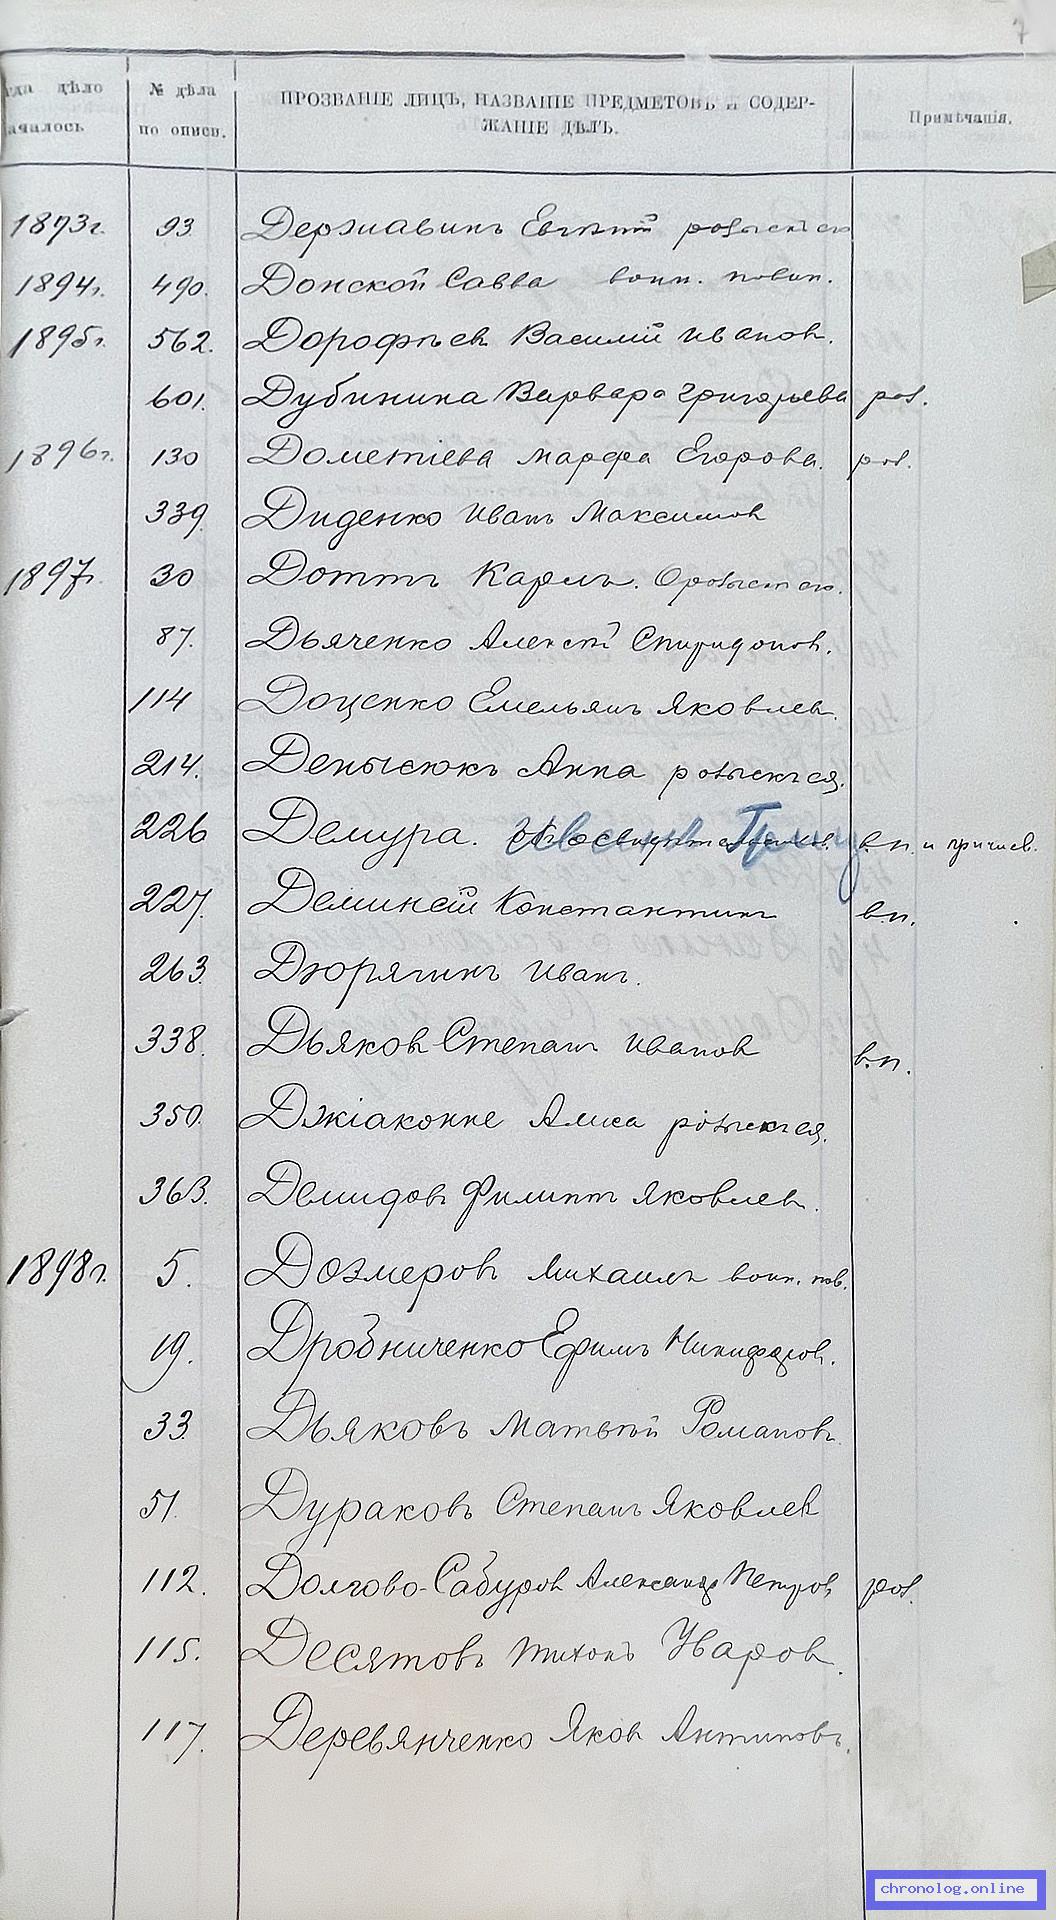 7
гда дѣло началось № дѣла по описи. ПРОЗВАНІЕ ЛИЦЪ, НАЗВАНІЕ ПРЕДМЕТОВЪ И СОДЕР-
ЖАНІЕ ДѢЛЪ. Примѣчанія.
1893г. 93 Державинъ Евгеній розыскъ его
1894г. 490. Донской Савва воин. повин.
1895г. 562. Дорофѣев Василій Иванов.
601. Дубинина Варвара Григорьева роз.
1896г. 130 Дометіева Марфа Егорова. роз.
339. Диденко Иванъ Максимов
1897г. 30 Доттъ Карлъ. О розыск его.
87. Дьяченко Алексѣй Спиридонов.
114 Доценко Емельянъ Яковлев.
214. Денысюкъ Анна розыскъ ея.
226 Демура. в.п. и причисл.
227. Деминскій Константинъ в.п.
263. Дюрягинъ Иванъ.
338. Дьяков Степанъ Иванов в.п.
350. Джіаконне Алиса розыскъ ея.
363. Демидовъ Филиппъ Яковлев.
1898г. 5. Дозмеровъ Михаилъ воин. пов.
19. Дробниченко Ефимъ Никифоров.
33 Дьяковъ Матвѣй Романовъ.
51. Дураковъ Степанъ Яковлев
112. Долгово-Сабуров Александр Петров роз.
115. Десятовъ Тихонъ Уваров.
117. Деревянченко Яков Антиповъ.
chronolog.online